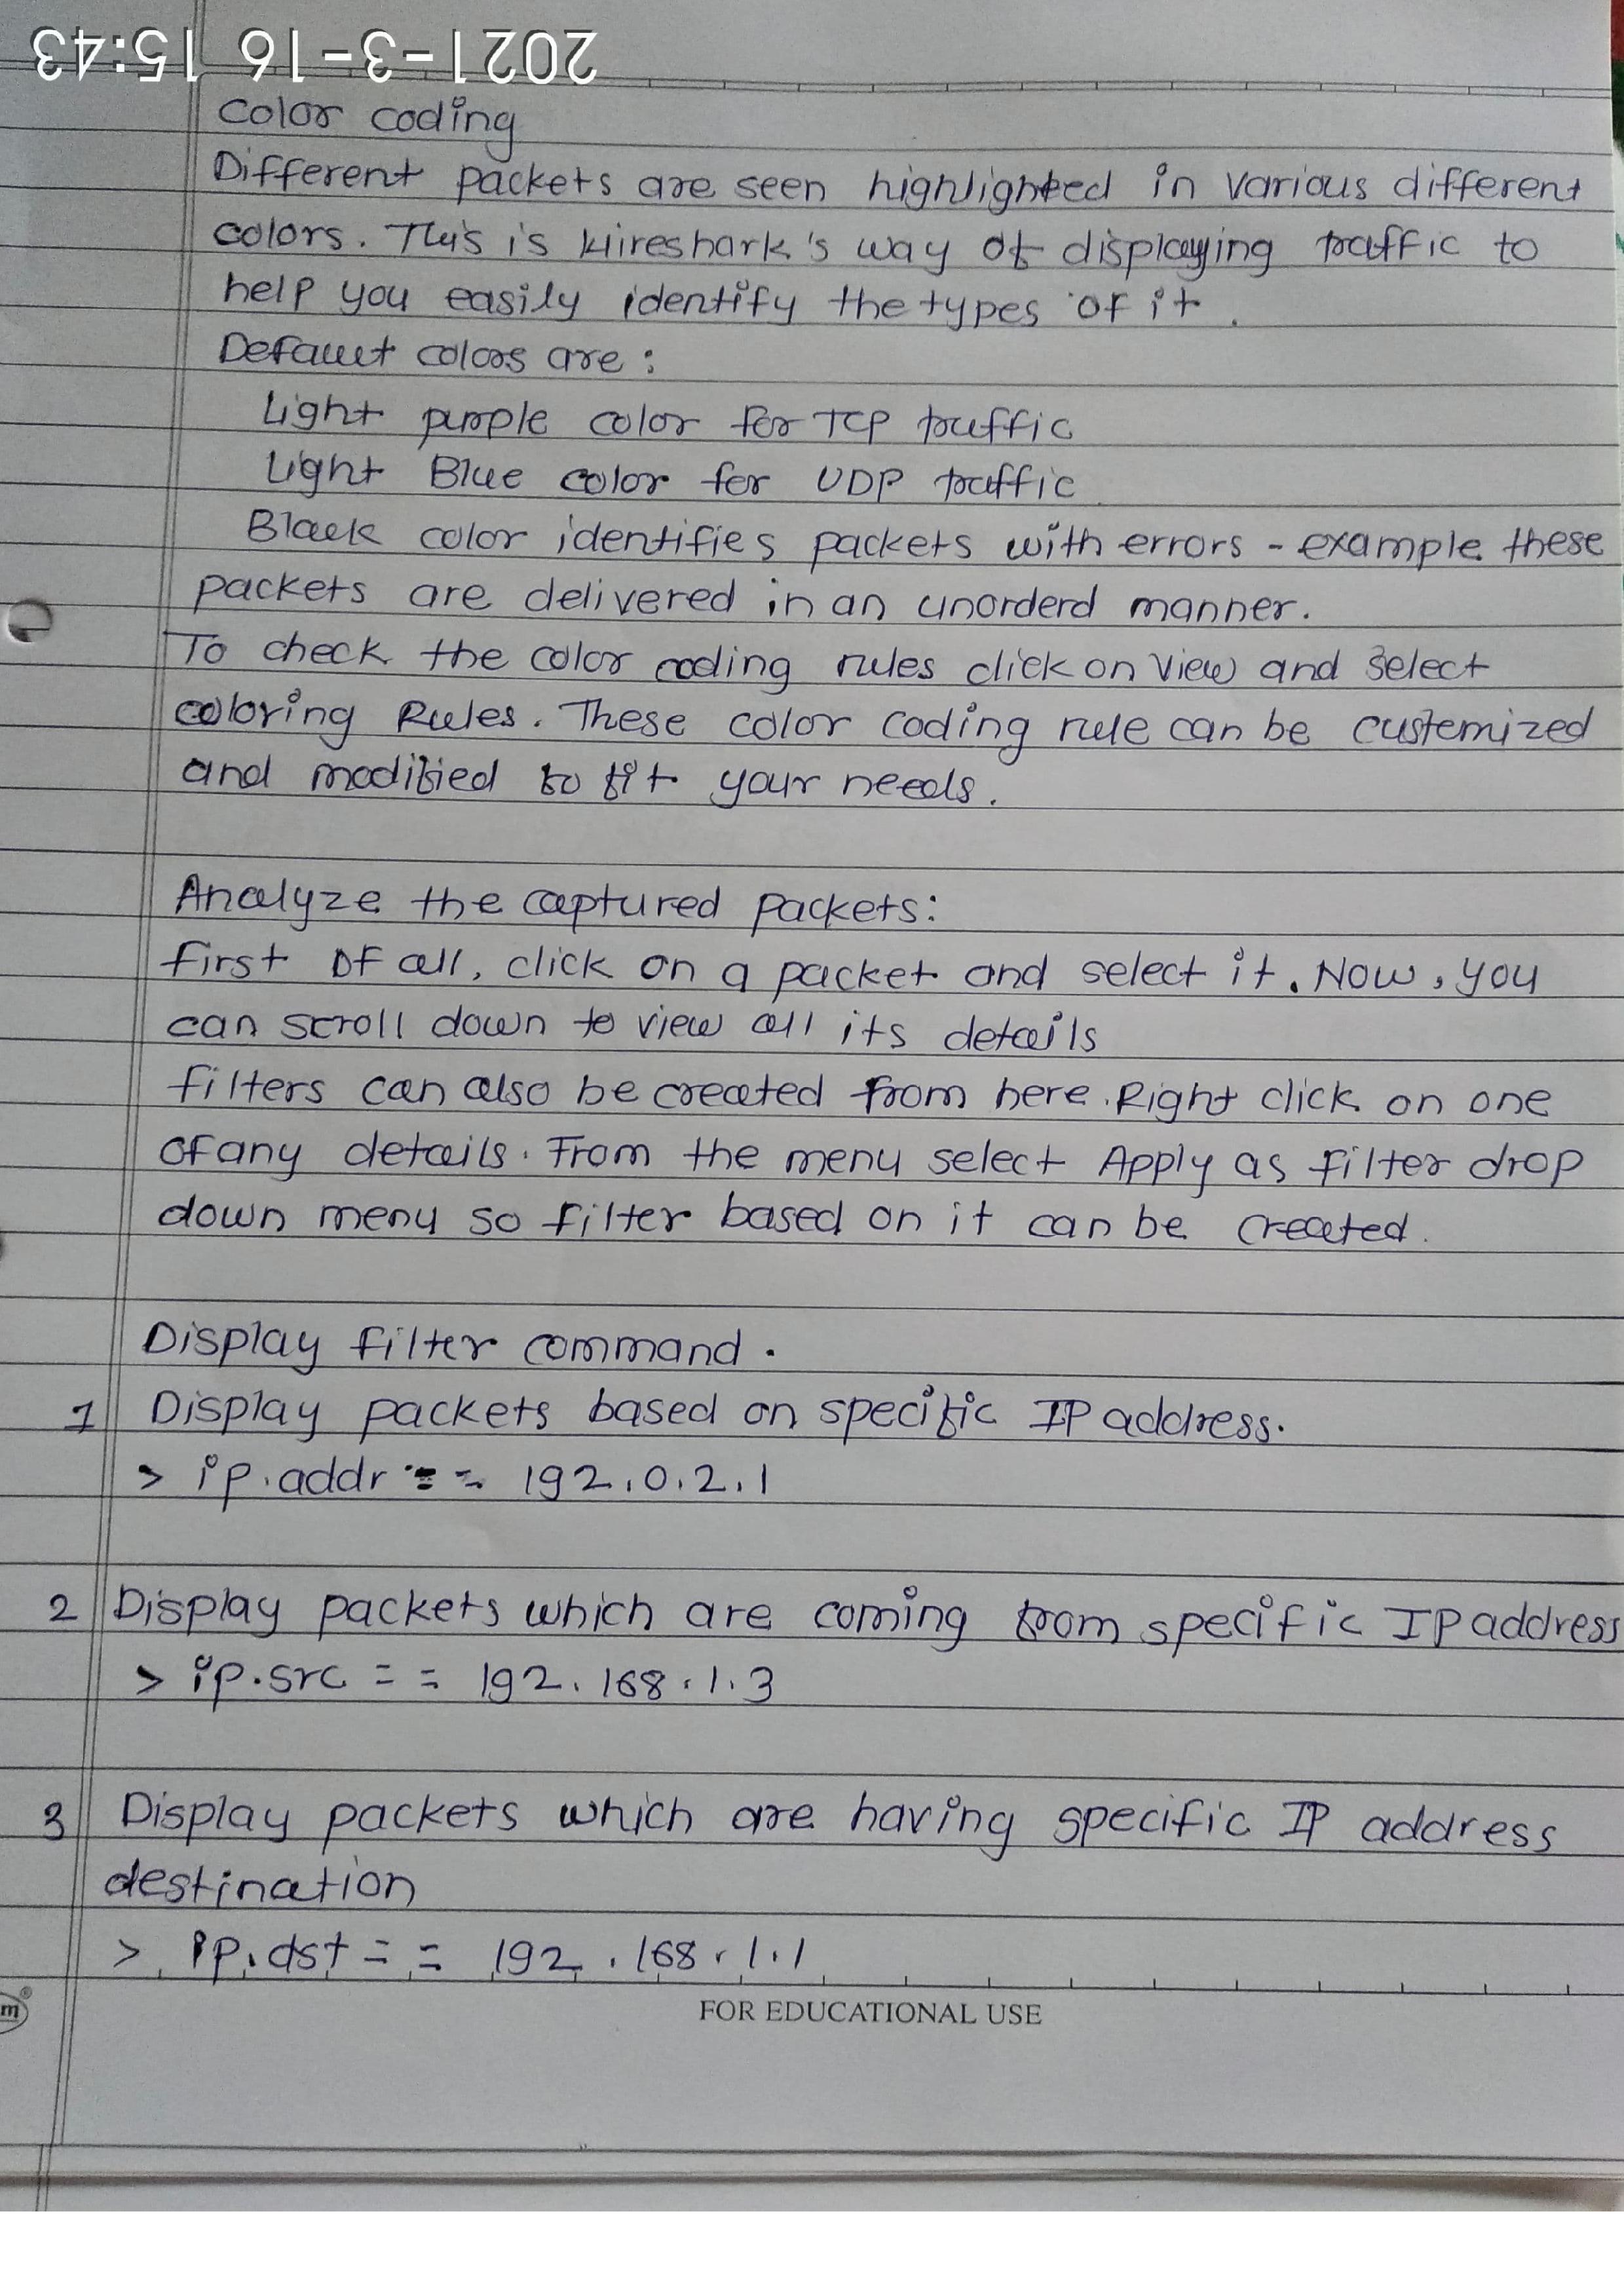 2021-3-16 15:43
Color coding
Different packets are seen highlighted in various different
colors. This is Wireshark's way of displaying traffic to
help you easily identify the types of it.
Default colors are:
Light purple color for TCP traffic
Light Blue color for UDP traffic
Black color identifies packets with errors - example these
packets are delivered in an unorderd manner.
To check the color coding rules click on View and Select
coloring Rules. These color coding rule can be custemized
and modified to fit your needs.
Analyze the captured packets:
First of all, click on a packet and select it. Now, you
can scroll down to view all its details
filters can also be created from here. Right click on one
of any details. From the menu select Apply as filter drop
down menu so filter based on it can be created.
Display filter command.
1 Display packets based on specific IP address.
> ip.addr == 192.0.2.1
2 Display packets which are coming from specific IP address
> ip.src == 192.168.1.3
3 Display packets which are having specific IP address
destination
> ip.dst == 192.168.1.1
m®
FOR EDUCATIONAL USE